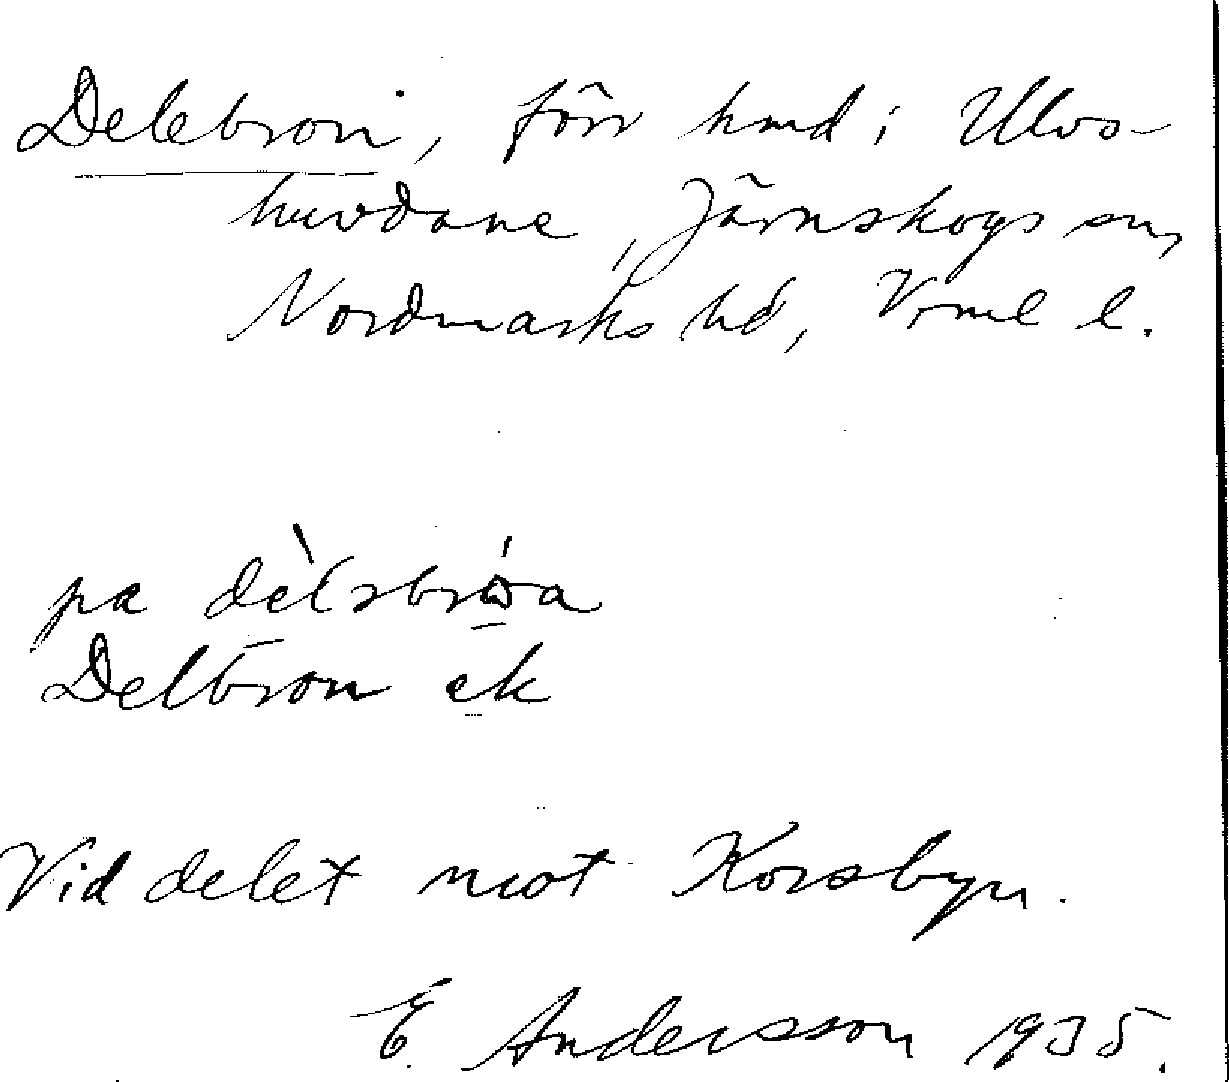 Delebron, förr hmd i Ulvs-
huvdane, Järnskogs sn,
Nordmarks hd, Vrml l.
pa
Delbron ek
Vid delet mot Korsbyn.
E. Andersson 1935.